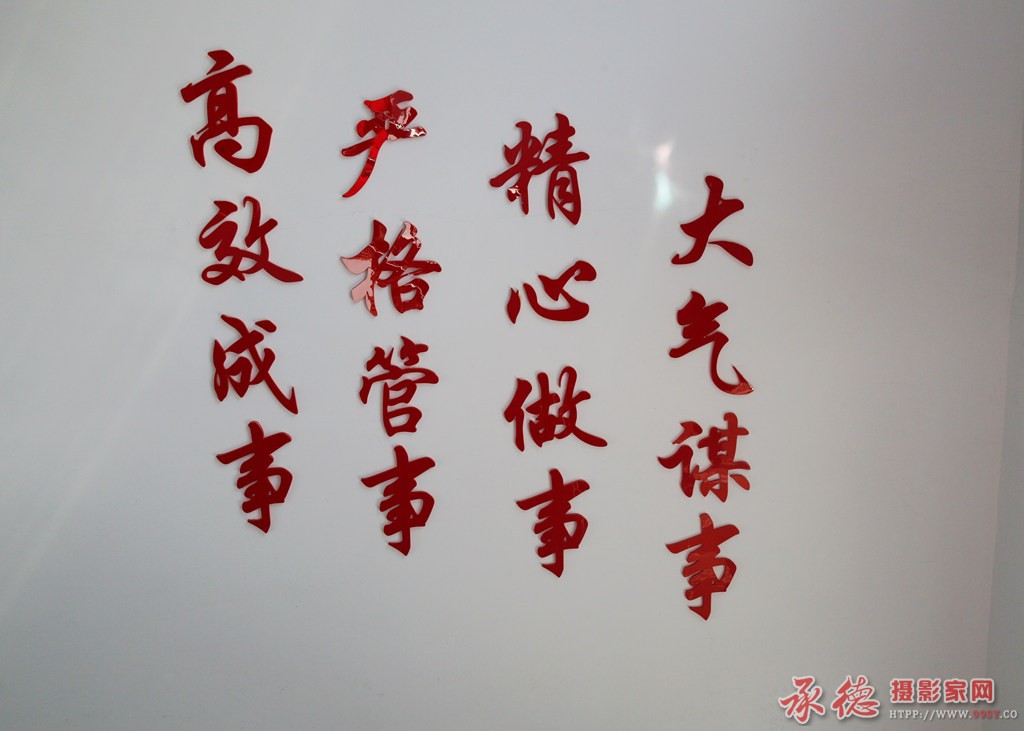 大气谋事
精心做事
严格管事
高效成事
承德摄影家网
HTPP://WWW.998Y.CO